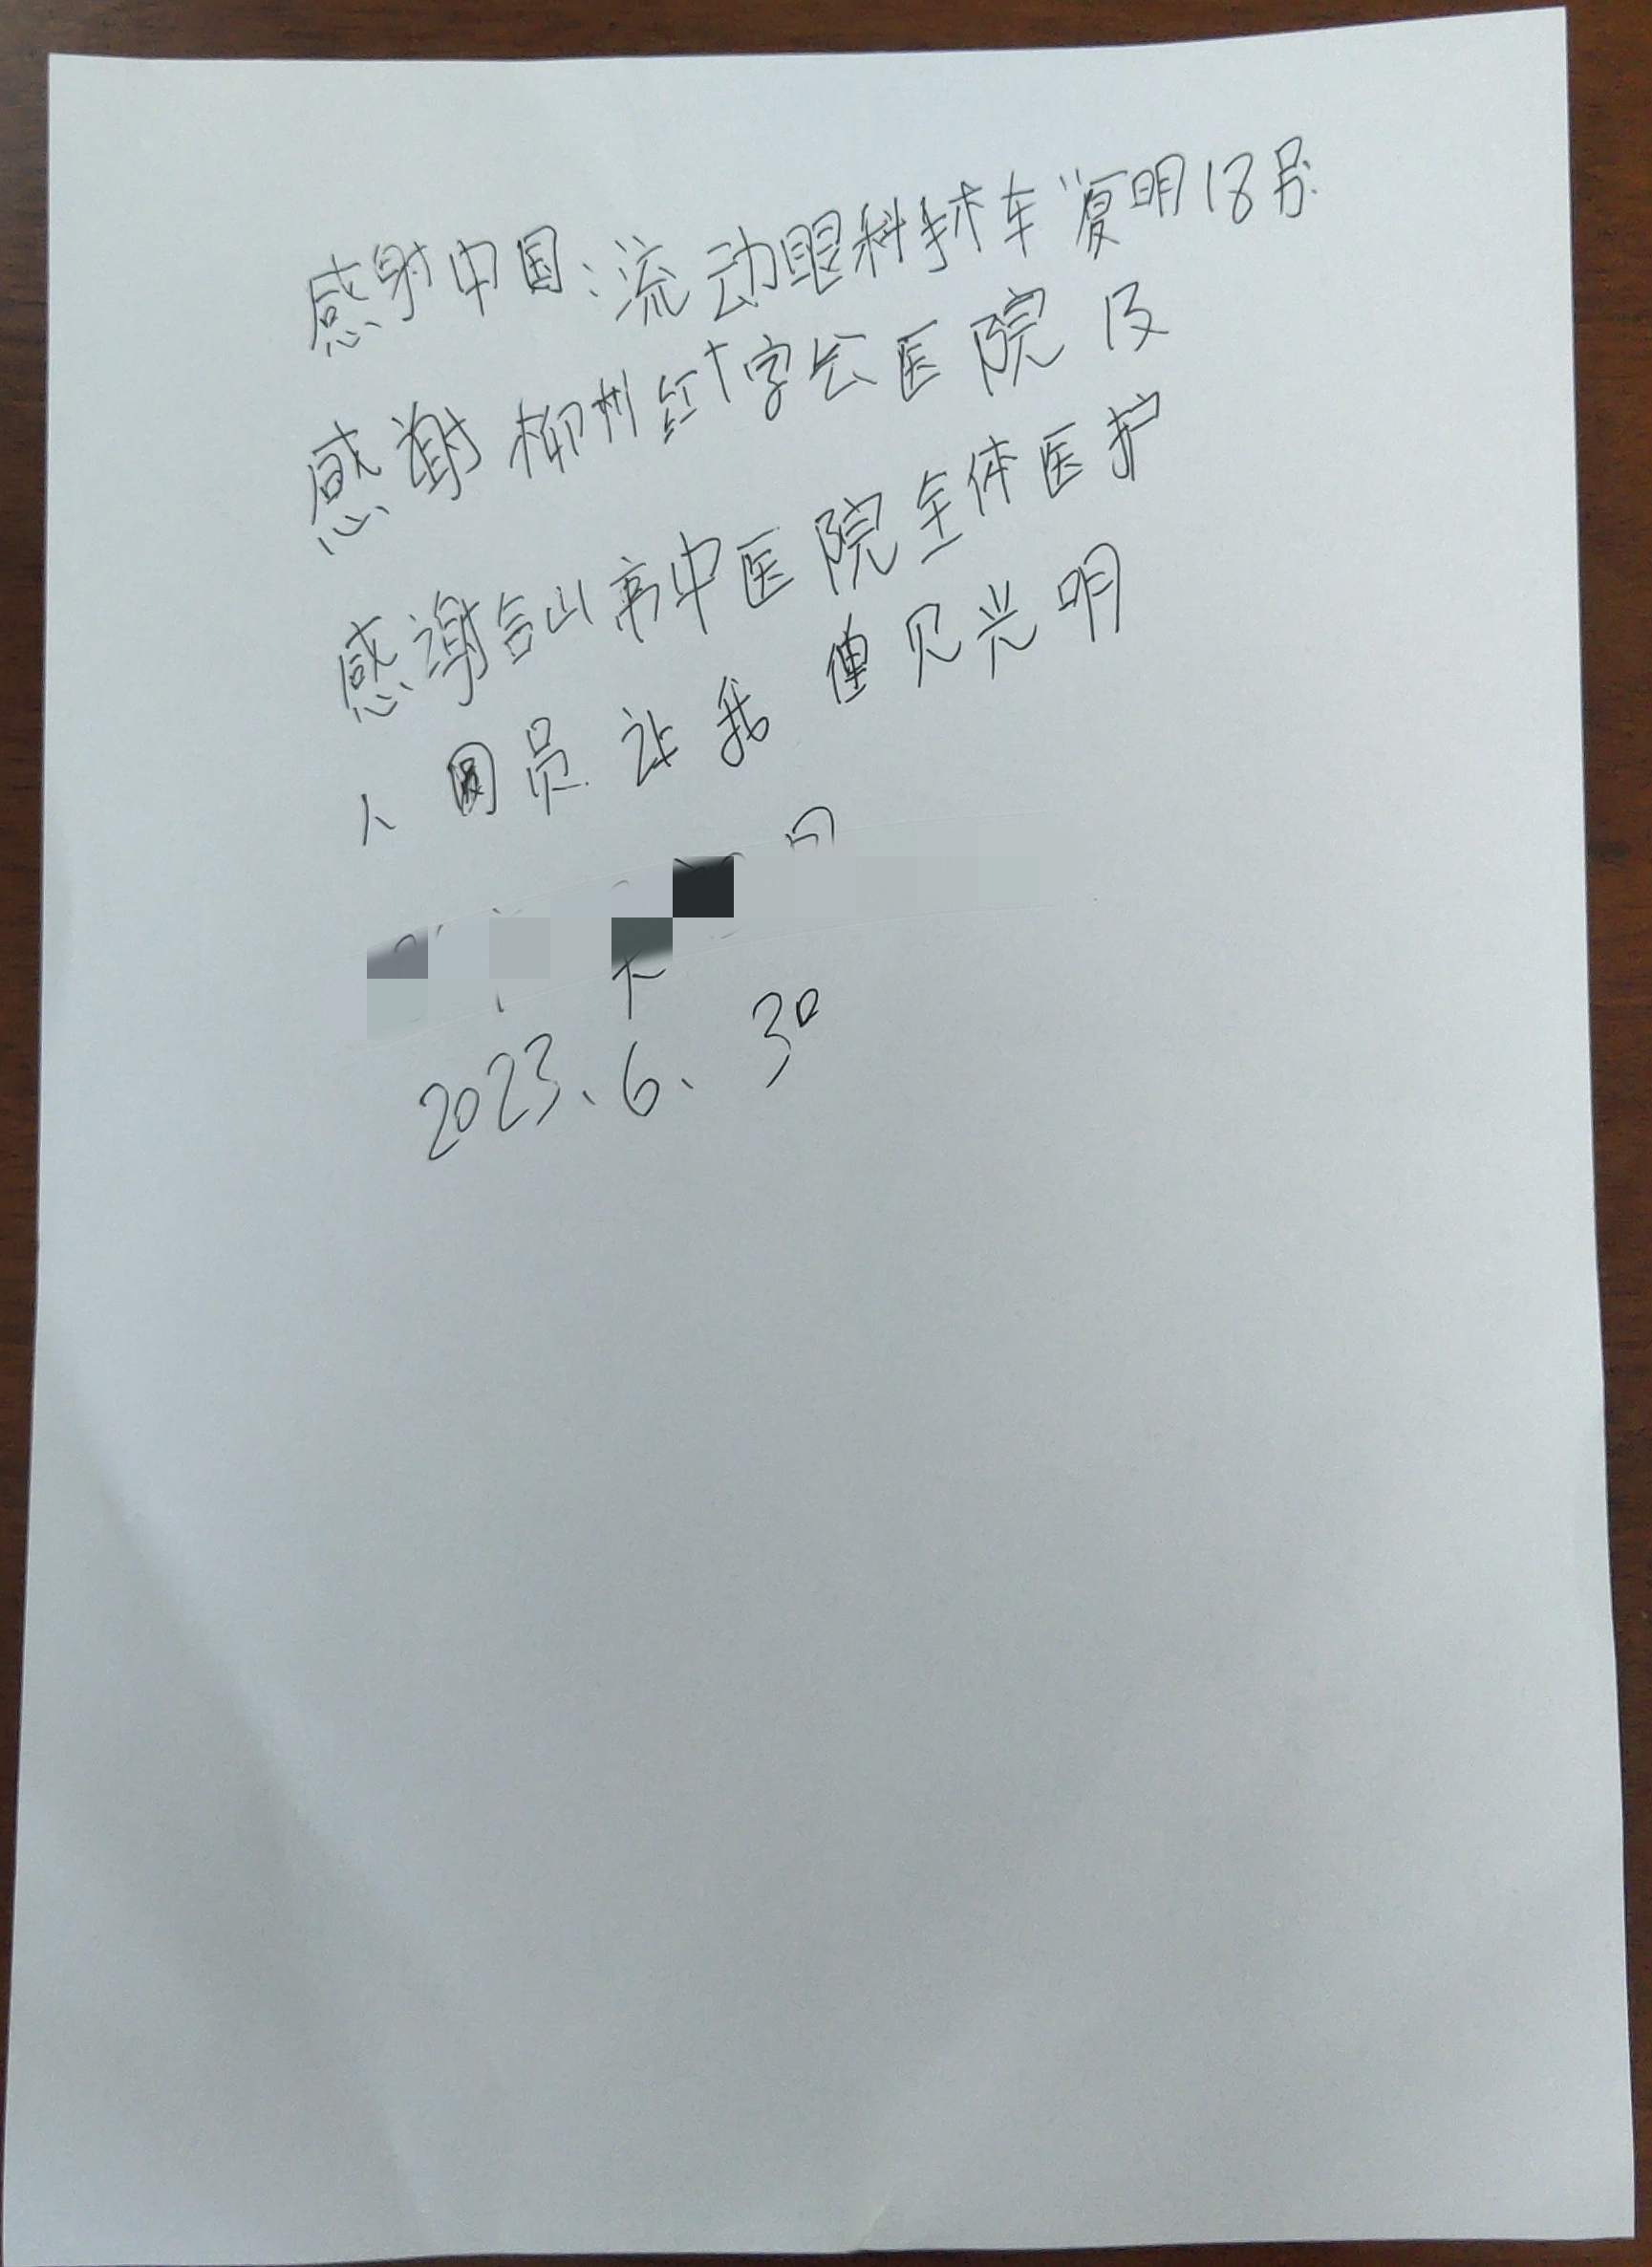 感射中国:流动眼科手术车"复明18号
感谢柳州红十字会医院及
感谢合山高中医院全体医护
人员让我 见光明
2023、6、30